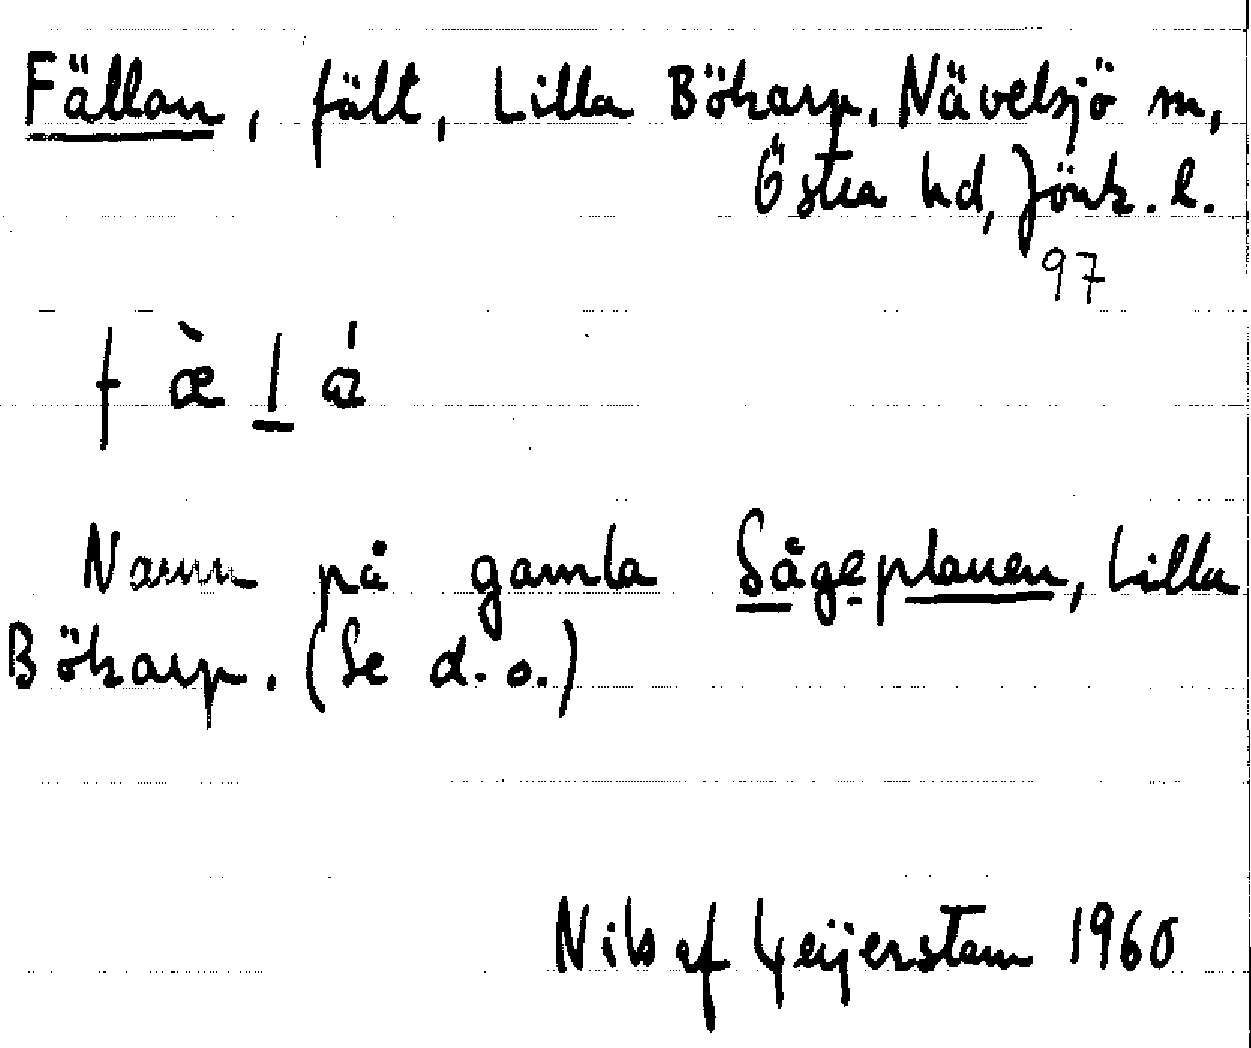 Fällan, fält, Lilla Bökarp, Nävelsjö sn,
Östra hd, Jönk. l.
97
f æ̀ l̲ á
Namn på gamla Sågeplanen, Lilla
Bökarp. (Se d. o.)
Nils af Geijerstam 1960